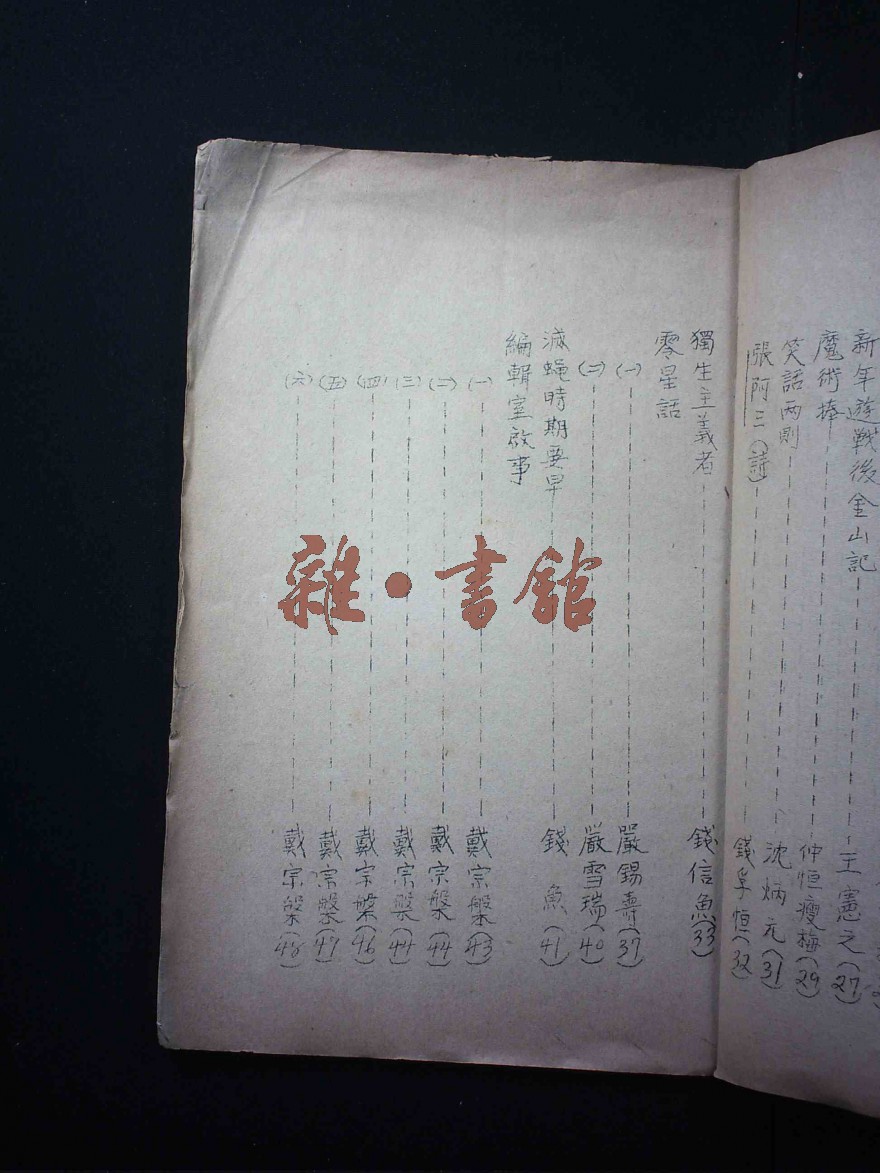 新年遊戰後金山記------王憲之(27)
魔術捧------仲恒瘦梅(29)
笑話両則------沈炳元(31)
張阿三(詩)------錢孚恒(32)
獨生主義者------錢信魚(33)
零星話
(一)------嚴錫壽(37)
(二)------嚴雪瑞(40)
滅蝇時期要早------錢魚(41)
編輯室啟事
(一)------戴宗槃(43)
(二)------戴宗槃(44)
(三)------戴宗槃(44)
(四)------戴宗槃(46)
(五)------戴宗槃(47)
(六)------戴宗槃(48)
雜·書館